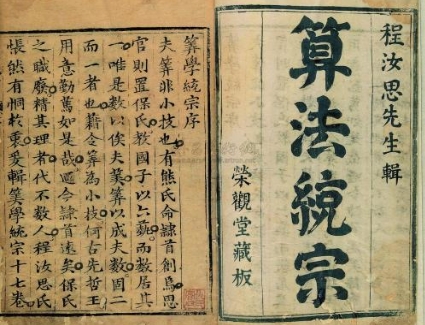 程汝思先生輯
算法統宗
榮觀堂藏板
筭學統宗序
夫筭非小技也有熊氏命隸首創爲思
官則置保氏教國子以六藝而數居其
一唯是數以俟夫筭筭以成夫數固二
而一者也藉令筭為小技何古先哲王
用意勤篤如是哉迺今隸首遠矣保氏
之職廢精其理者代不數人程汝思氏
悵然有恫於衷爰輯筭學統宗十七卷